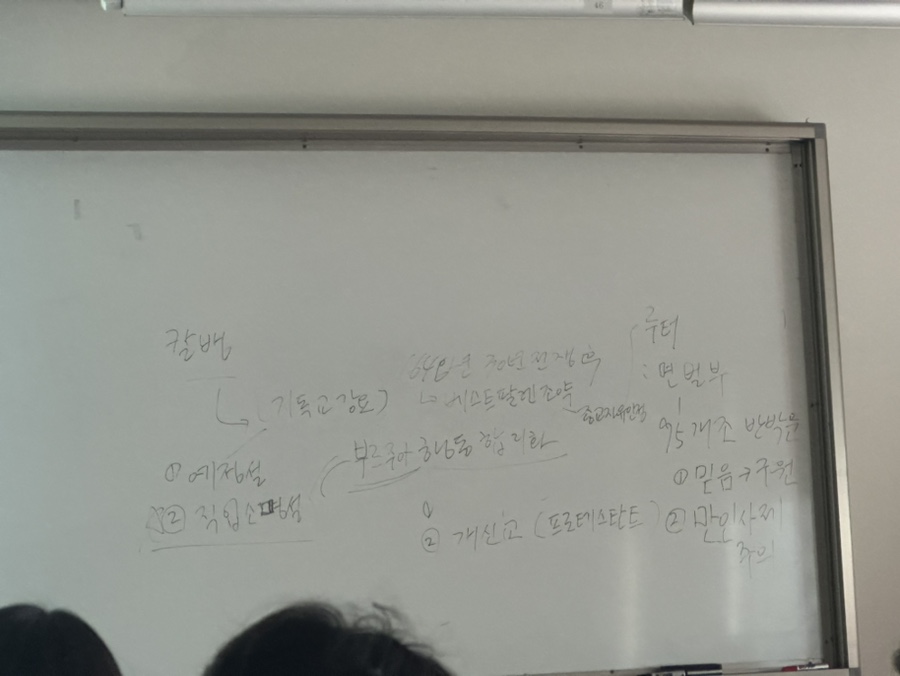 칼뱅
(기독교강요)
① 예정설
② 직업소명설
30년전쟁 후
베스트팔렌조약
종교자유인정
부르주아 행동 합리화
①
② 개신교 (프로테스탄트)
루터
: 면벌부
95개조 반박문
① 믿음→구원
② 만인사제
주의